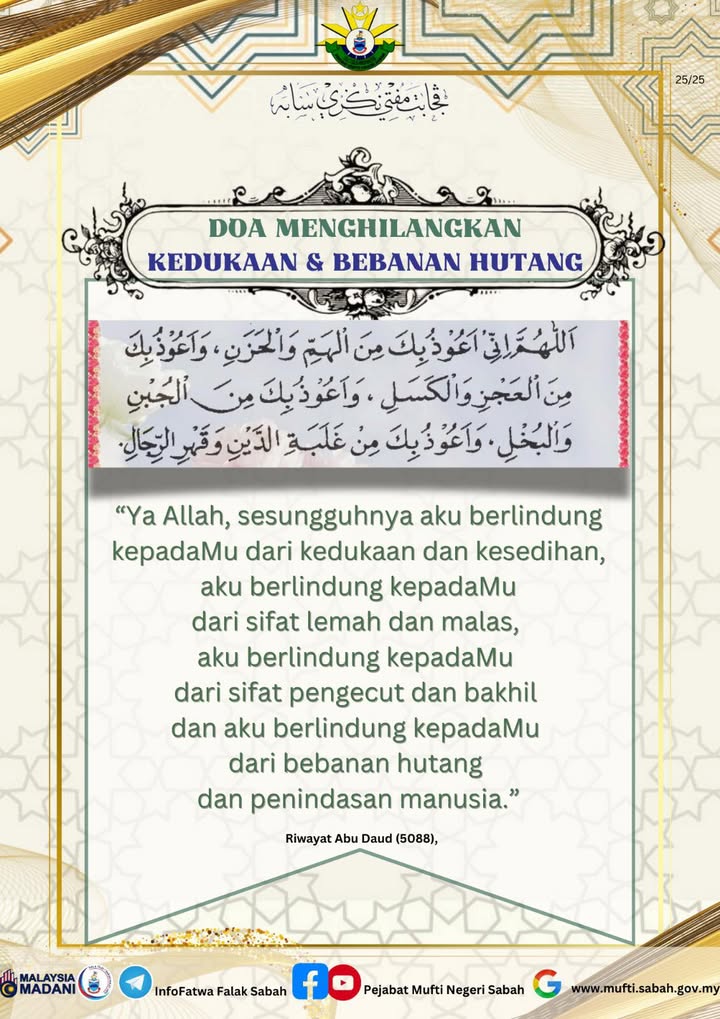 25/25
ڤجابت مفتي نݢري سابه
DOA MENGHILANGKAN
KEDUKAAN & BEBANAN HUTANG
اَللّٰهُمَّ اِنِّىْ اَعُوْذُ بِكَ مِنَ الْهَمِّ وَالْحَزَنِ، وَاَعُوْذُ بِكَ
مِنَ الْعَجْزِ وَالْكَسَلِ، وَاَعُوْذُ بِكَ مِنَ الْجُبْنِ
وَالْبُخْلِ. وَاَعُوْذُ بِكَ مِنْ غَلَبَةِ الدَّيْنِ وَقَهْرِ الرِّجَالِ.
“Ya Allah, sesungguhnya aku berlindung
kepadaMu dari kedukaan dan kesedihan,
aku berlindung kepadaMu
dari sifat lemah dan malas,
aku berlindung kepadaMu
dari sifat pengecut dan bakhil
dan aku berlindung kepadaMu
dari bebanan hutang
dan penindasan manusia.”
Riwayat Abu Daud (5088),
MALAYSIA
MADANI
InfoFatwa Falak Sabah
Pejabat Mufti Negeri Sabah
www.mufti.sabah.gov.my